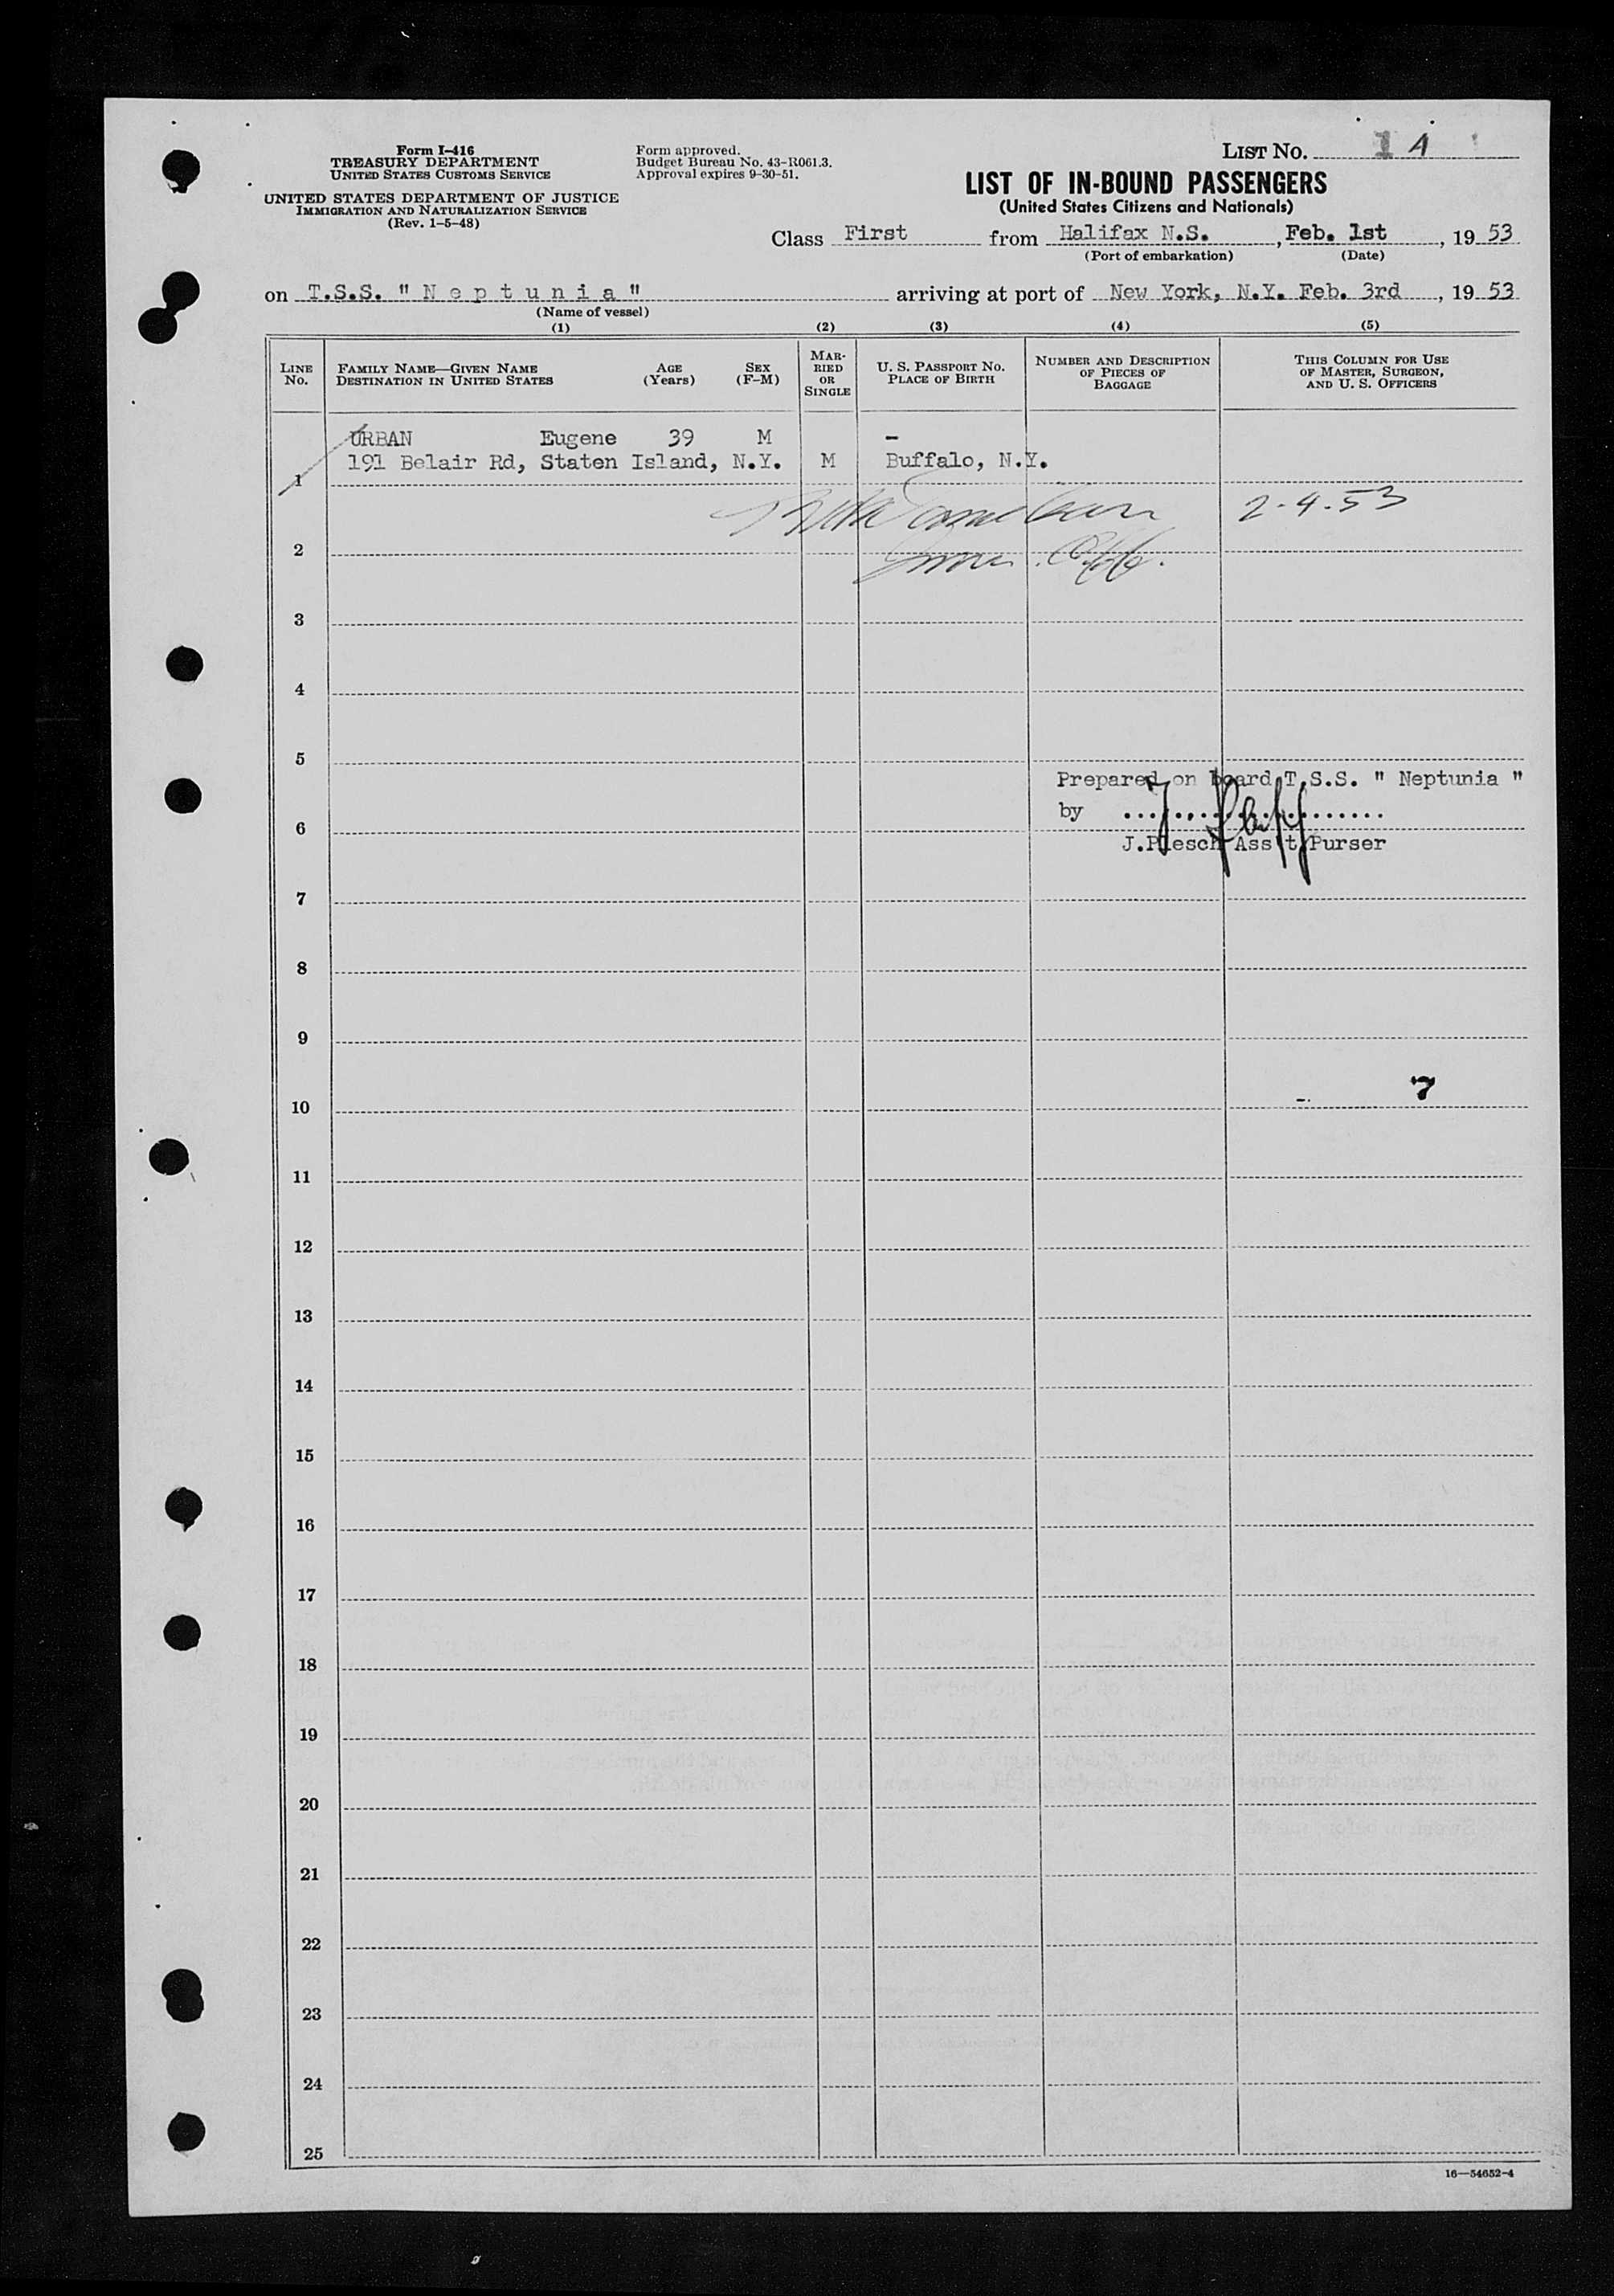 Form I-416
TREASURY DEPARTMENT
UNITED STATES CUSTOMS SERVICE
UNITED STATES DEPARTMENT OF JUSTICE
IMMIGRATION AND NATURALIZATION SERVICE
(Rev. 1-5-48)
Form approved.
Budget Bureau No. 43-R061.3.
Approval expires 9-30-51.
LIST NO. 1 A
LIST OF IN-BOUND PASSENGERS
(United States Citizens and Nationals)
Class First from Halifax N.S., Feb. 1st, 19 53
(Port of embarkation) (Date)
on T.S.S. " N e p t u n i a " arriving at port of New York, N.Y. Feb. 3rd, 19 53
(Name of vessel)
(1) (2) (3) (4) (5)
LINE NO.
FAMILY NAME—GIVEN NAME AGE SEX
DESTINATION IN UNITED STATES (Years) (F-M)
MAR-
RIED
OR
SINGLE
U. S. PASSPORT NO.
PLACE OF BIRTH
NUMBER AND DESCRIPTION
OF PIECES OF
BAGGAGE
THIS COLUMN FOR USE
OF MASTER, SURGEON,
AND U. S. OFFICERS
URBAN Eugene 39 M -
191 Belair Rd, Staten Island, N.Y. M Buffalo, N.Y.
1
2-4-53
2
3
4
5
Prepared on board T.S.S. " Neptunia "
by ......................
6
J.Plesch Ass't Purser
7
8
9
7
10
11
12
13
14
15
16
17
18
19
20
21
22
23
24
25
16—54652-4